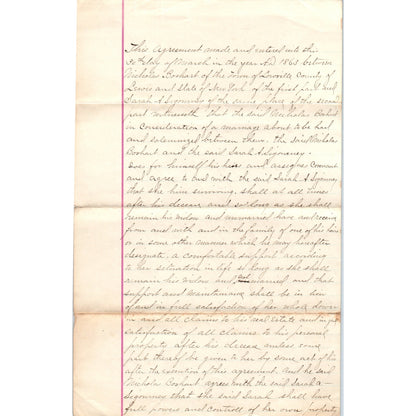 This Agreement made and entered into the
30th day of March in the year AD 1863 between
Nicholas Boshart of the Town of Lowville County of
Lewis and State of New York of the first part and
Sarah A Sigourney of the same place of the second
part witnesseth That the said Nicholas Boshart
in Consideration of a marriage about to be had
and solemnized between them the said Nicholas
Boshart and the said Sarah A Sigourney
does for himself his heirs and assigns Covenant
and agree to and with the said Sarah A Sigourney
that she him surviving shall at all times
after his decease and so long as she shall
remain his widow and unmarried have and receive
from and with and in the family of one of his heirs
or in some other manner which he may hereafter
designate a comfortable support according
to her situation in life so long as she shall
remain his widow and unmarried and that
support and maintenance shall be in lieu
of and in full satisfaction of her whole dower
in and all claims to his real estate and in full
satisfaction of all claims to his personal
property after his decease unless some
part thereof be given to her by some act of his
after the execution of this agreement. And the said
Nicholas Boshart agrees with the said Sarah A
Sigourney that she said Sarah shall have
full power and control of her own property